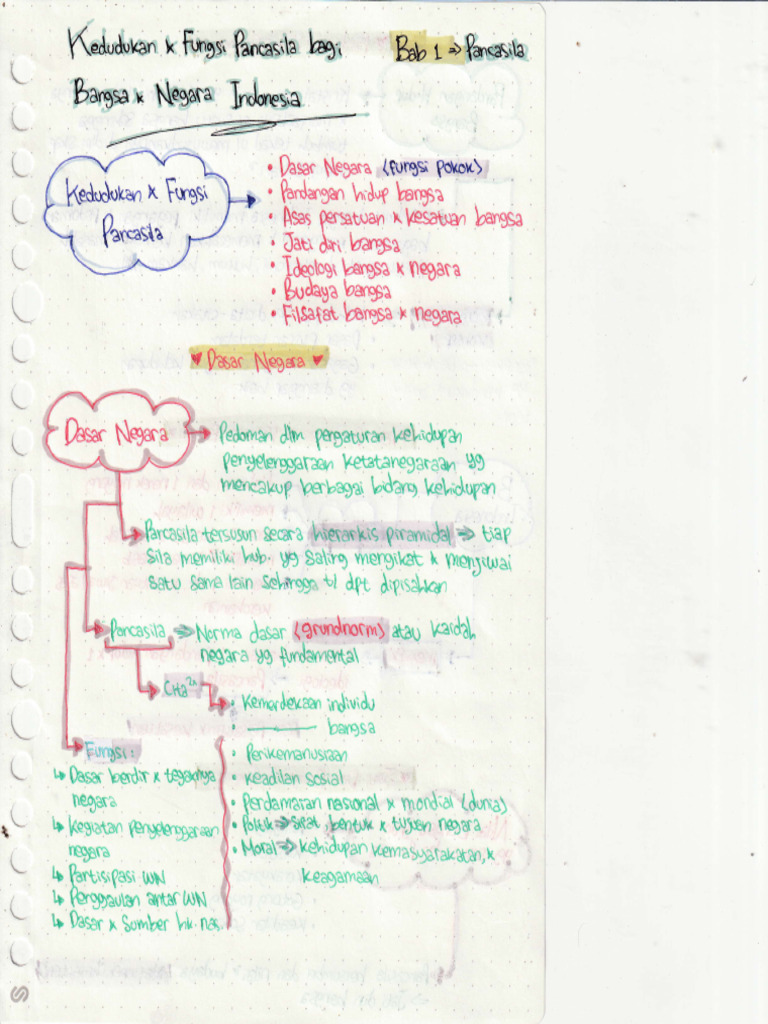 Kedudukan & Fungsi Pancasila bagi
Bab 1 ⇒ Pancasila
Bangsa & Negara Indonesia
Kedudukan & Fungsi
Pancasila
• Dasar Negara (fungsi pokok)
• Pandangan hidup bangsa
• Asas persatuan & kesatuan bangsa
• Jati diri bangsa
• Ideologi bangsa & negara
• Budaya bangsa
• Filsafat bangsa & negara
♥ Dasar Negara ♥
Dasar Negara
Pedoman dlm pengaturan kehidupan
penyelenggaraan ketatanegaraan yg
mencakup berbagai bidang kehidupan
Pancasila tersusun secara hierarkis piramidal ⇒ tiap
sila memiliki hub. yg saling mengikat & menjiwai
satu sama lain sehingga t/ dpt dipisahkan
Pancasila ⇒ Norma dasar (grundnorm) atau kaidah
negara yg fundamental
Cita²ⁿ
• Kemerdekaan individu
• ——— bangsa
• Perikemanusiaan
• Keadilan sosial
• Perdamaian nasional & mondial (dunia)
• Politik ⇒ sifat, bentuk & tujuan negara
• Moral ⇒ kehidupan kemasyarakatan, &
keagamaan
Fungsi:
↳ Dasar berdiri & tegaknya
negara
↳ Kegiatan penyelenggaraan
negara
↳ Partisipasi WN
↳ Perggaulan antar WN
↳ Dasar & Sumber hk. nas.